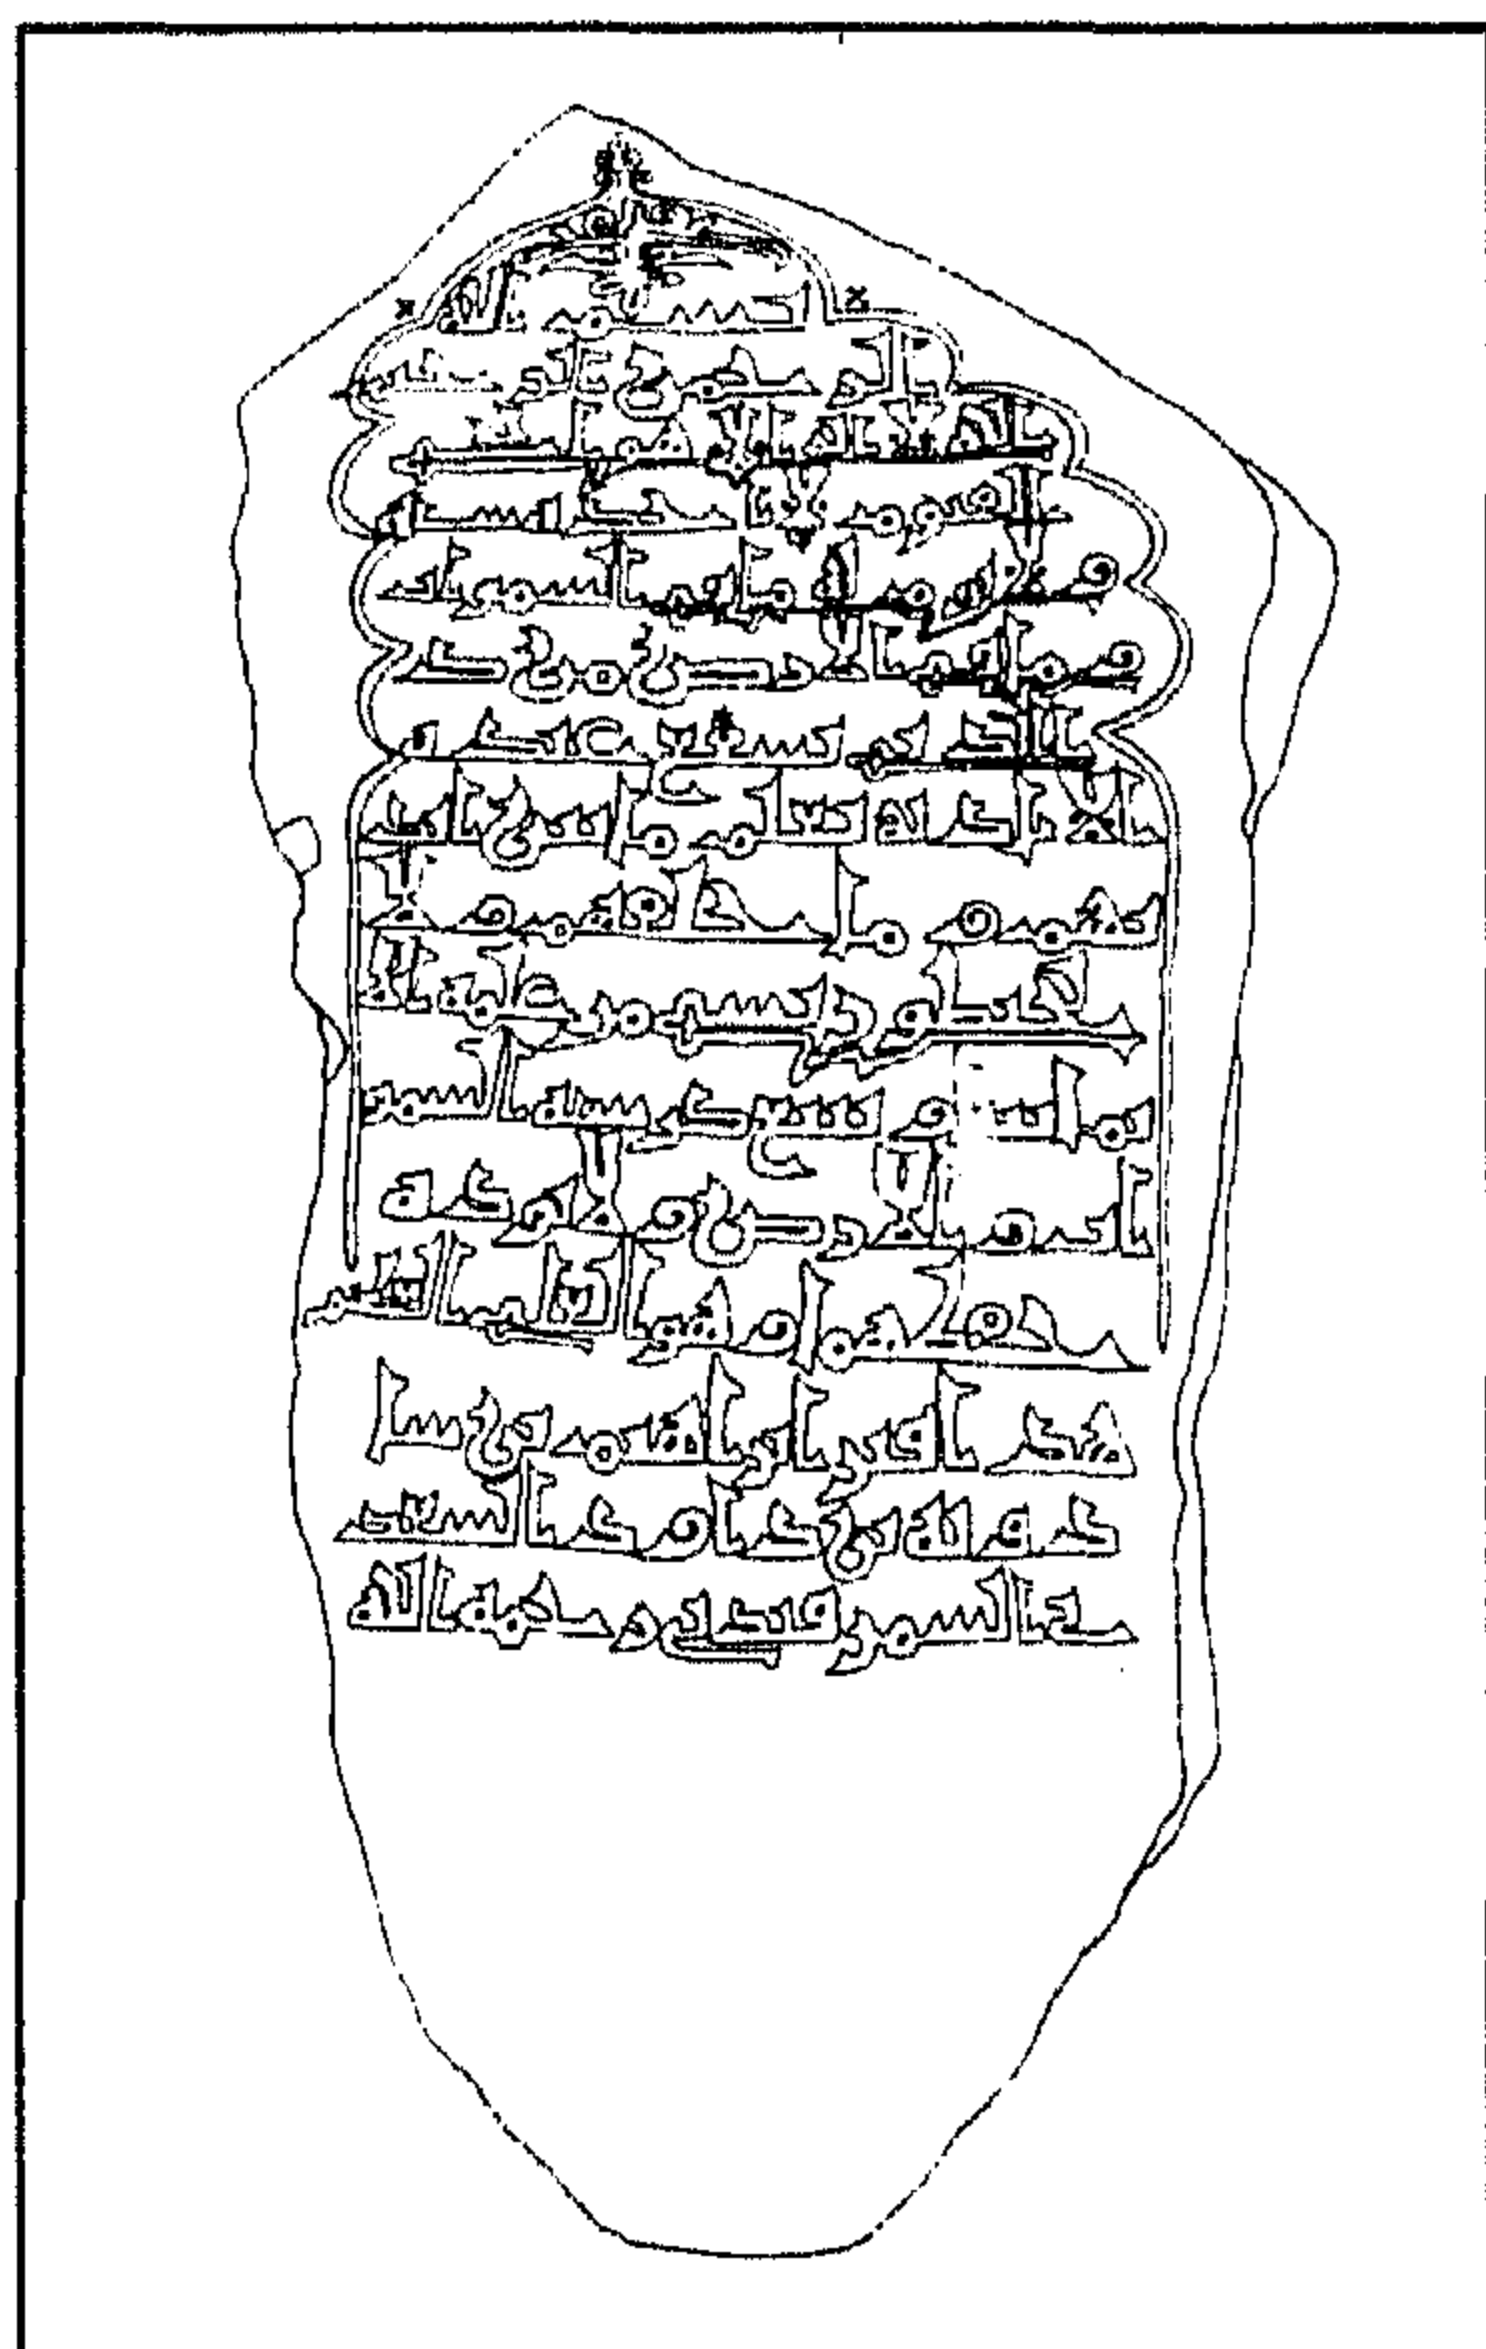 بسم الله
الرحمن الرحيم
الله لا اله الا هو الحي
القيوم لا تاخذه سنة
ولا نوم له ما في السموات
وما في الارض من ذ
ا الذي يشفع عنده
الا باذنه يعلم ما بين ايد
يهم وما خلفهم ولا
يحيطون بشي من علمه الا
بما شا وسع كرسيه السمو
ات والارض ولا يوده
حفظهما وهو العلي العظيم
هذا قبر ابراهيم بن
السمرقندي رحمه الله